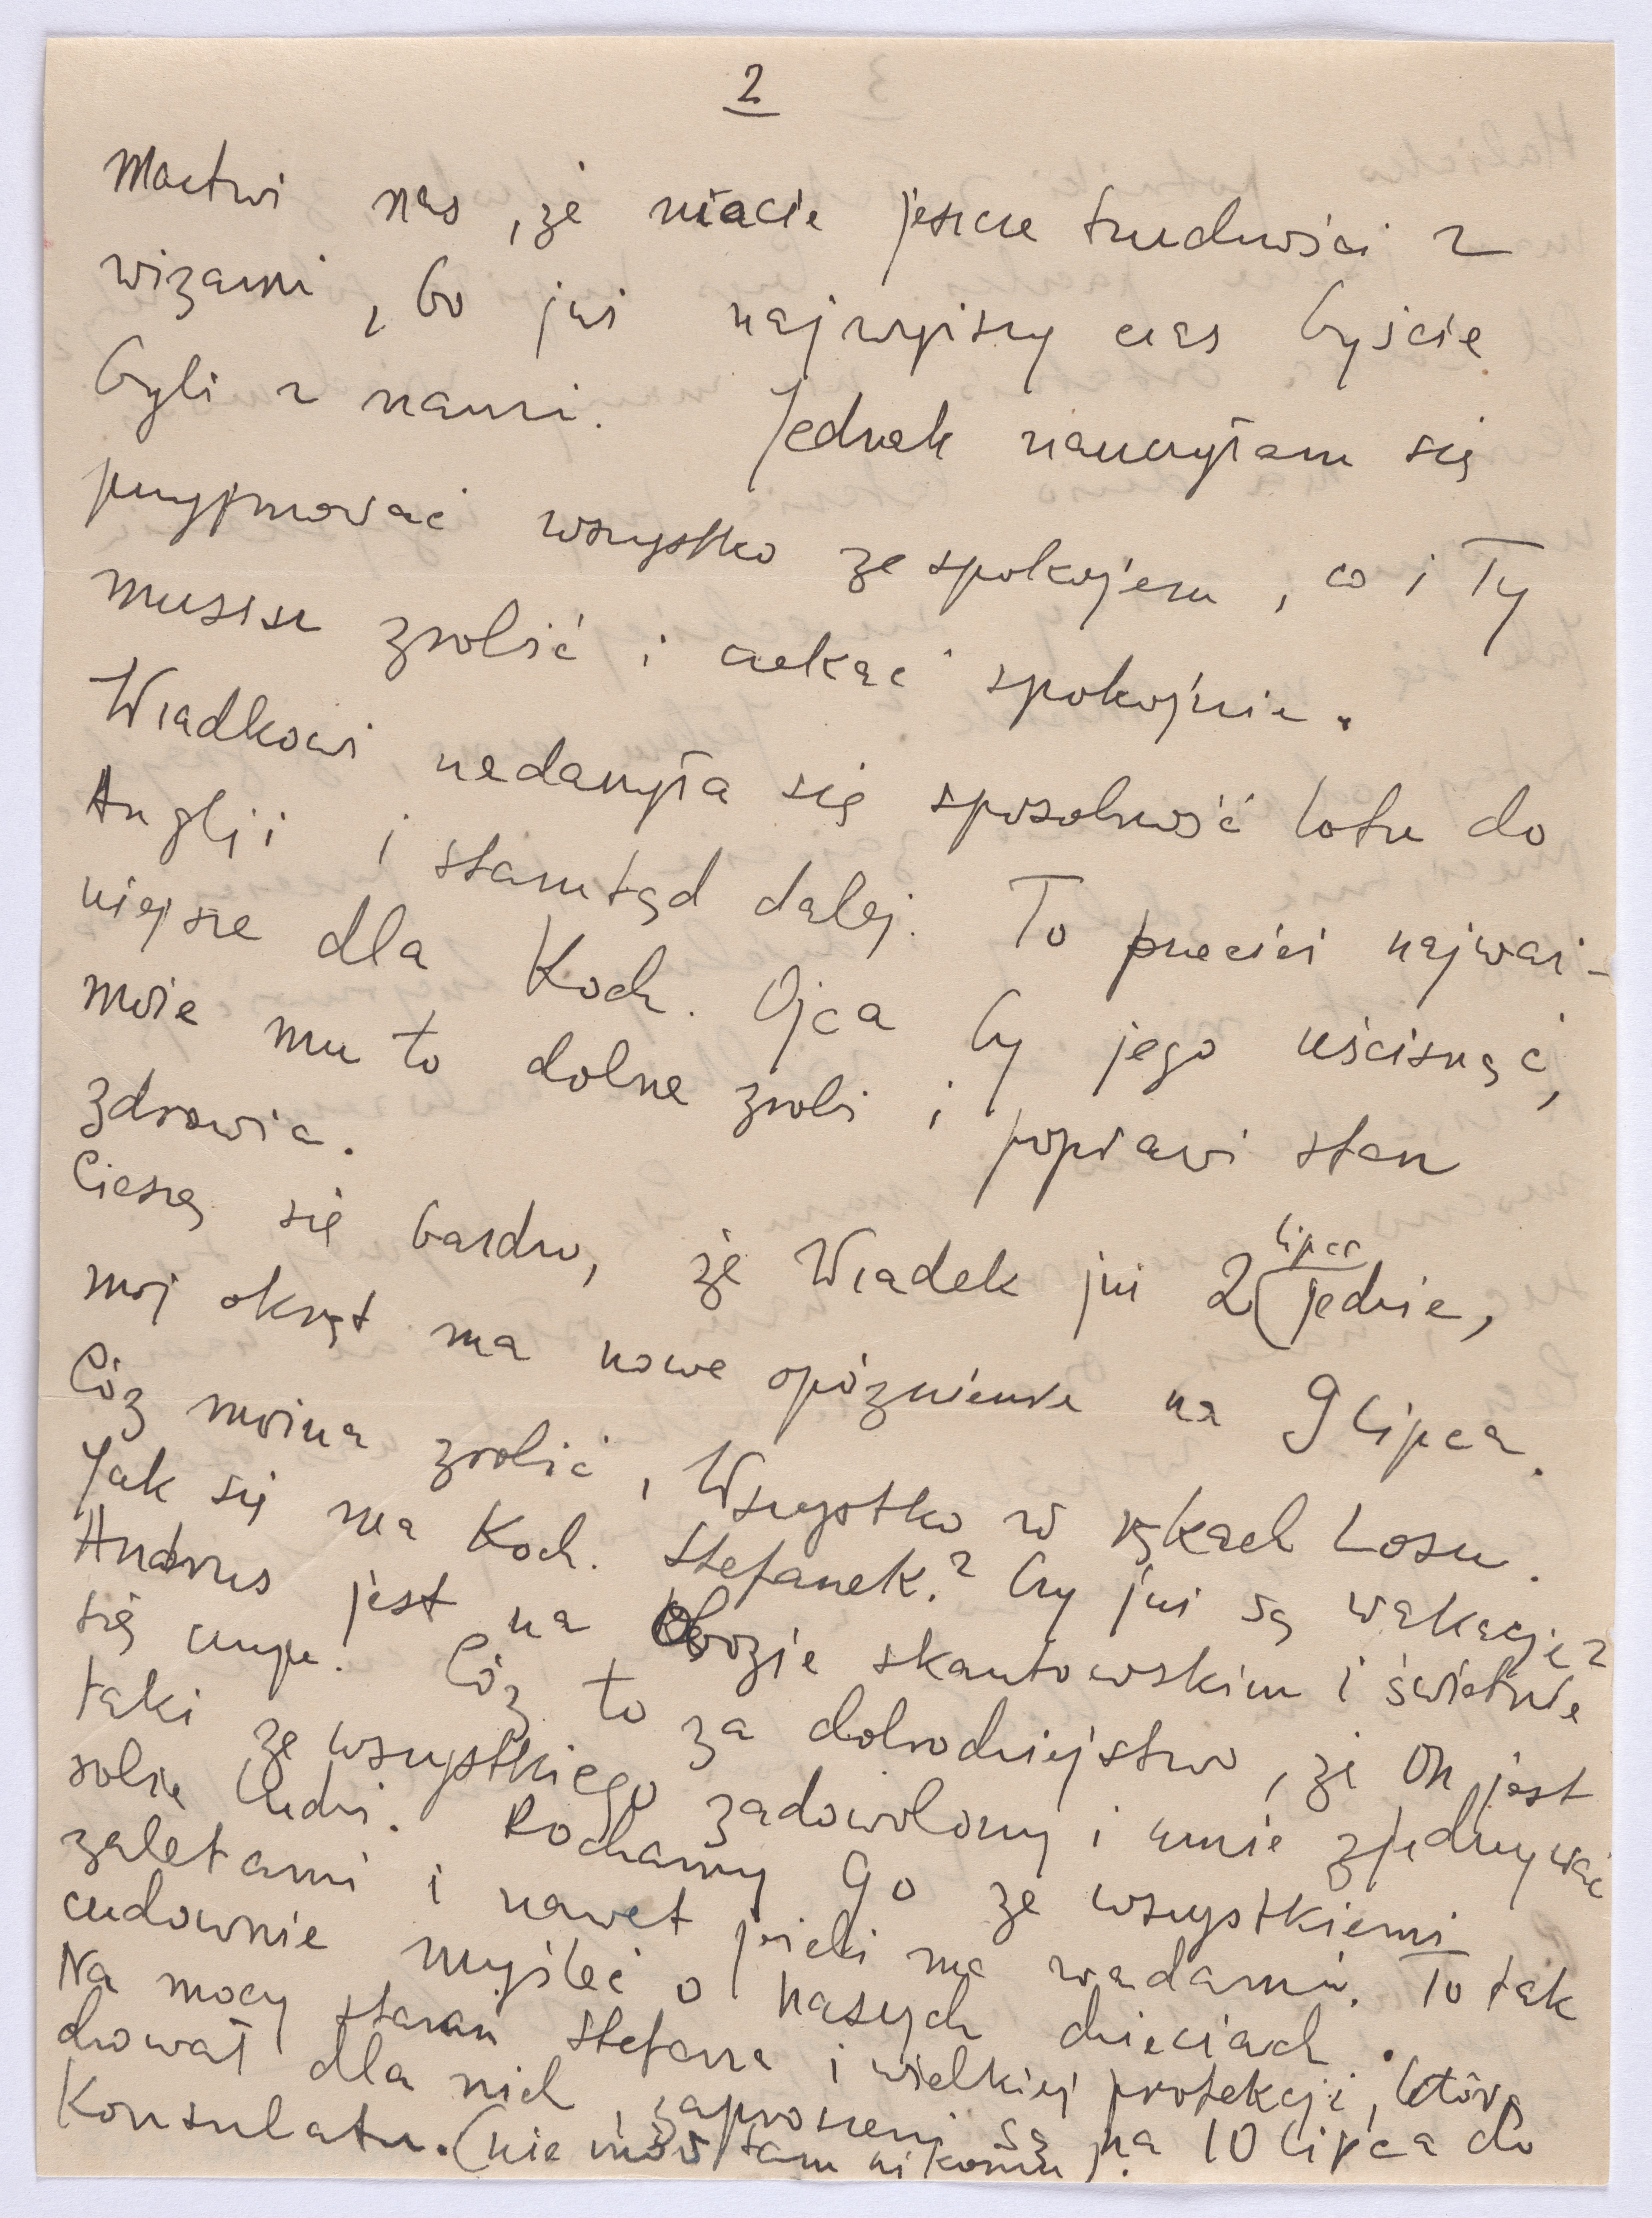 2
Martwi nas, że macie jeszcze trudności z
wizami, bo już najwyższy czas byście
byli z nami. Jednak nauczyłam się
przyjmować wszystko ze spokojem, co i Ty
musisz zrobić i czekać spokojnie.
Władkowi nadarzyła się sposobność lotu do
Anglji i stamtąd dalej. To przecież najważ-
niejsze dla Koch. Ojca by jego uścisnąć,
może mu to dobrze zrobi i poprawi stan
zdrowia.
Cieszę się bardzo, że Władek już 2 lipca jedzie,
mój okręt ma nowe opóźnienie na 9 lipca.
Cóz można zrobić, Wszystko w rękach Losu.
Jak się ma Koch. Stefanek? Czy już są wakacje?
Andrus jest na Obozie skautowskim i świetnie
się czuje. Cóz to za dobrodziejstwo, że On jest
taki ze wszystkiego zadowolony i umie zjednywać
sobie ludzi. Kochamy go ze wszystkiemi
zaletami i nawet jeżeli ma wadami. To tak
cudownie myśleć o naszych dzieciach.
Na mocy starań Stefana i wielkiej protekcji, którą
dla nich, zaproszeni są na 10 lipca do
Konsulatu. (nie mów tam nikomu).